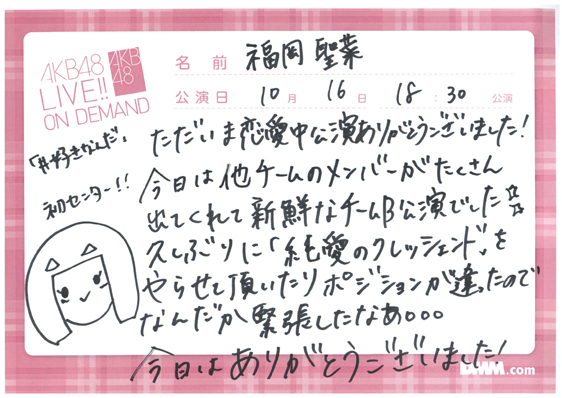 AKB48
LIVE!!
ON DEMAND
AKB
48
名前 福岡 聖菜
公演日 10月 16日 18:30 公演
「#好きなんだ」
初センター!!
ただいま恋愛中公演ありがとうございました!
今日は他チームのメンバーがたくさん
出てくれて新鮮なチームB公演でした☆
久しぶりに「純愛のクレッシェンド」を
やらせて頂いたりポジションが違ったので
なんだか緊張したなあ。。。
今日はありがとうございました!
DMM.com